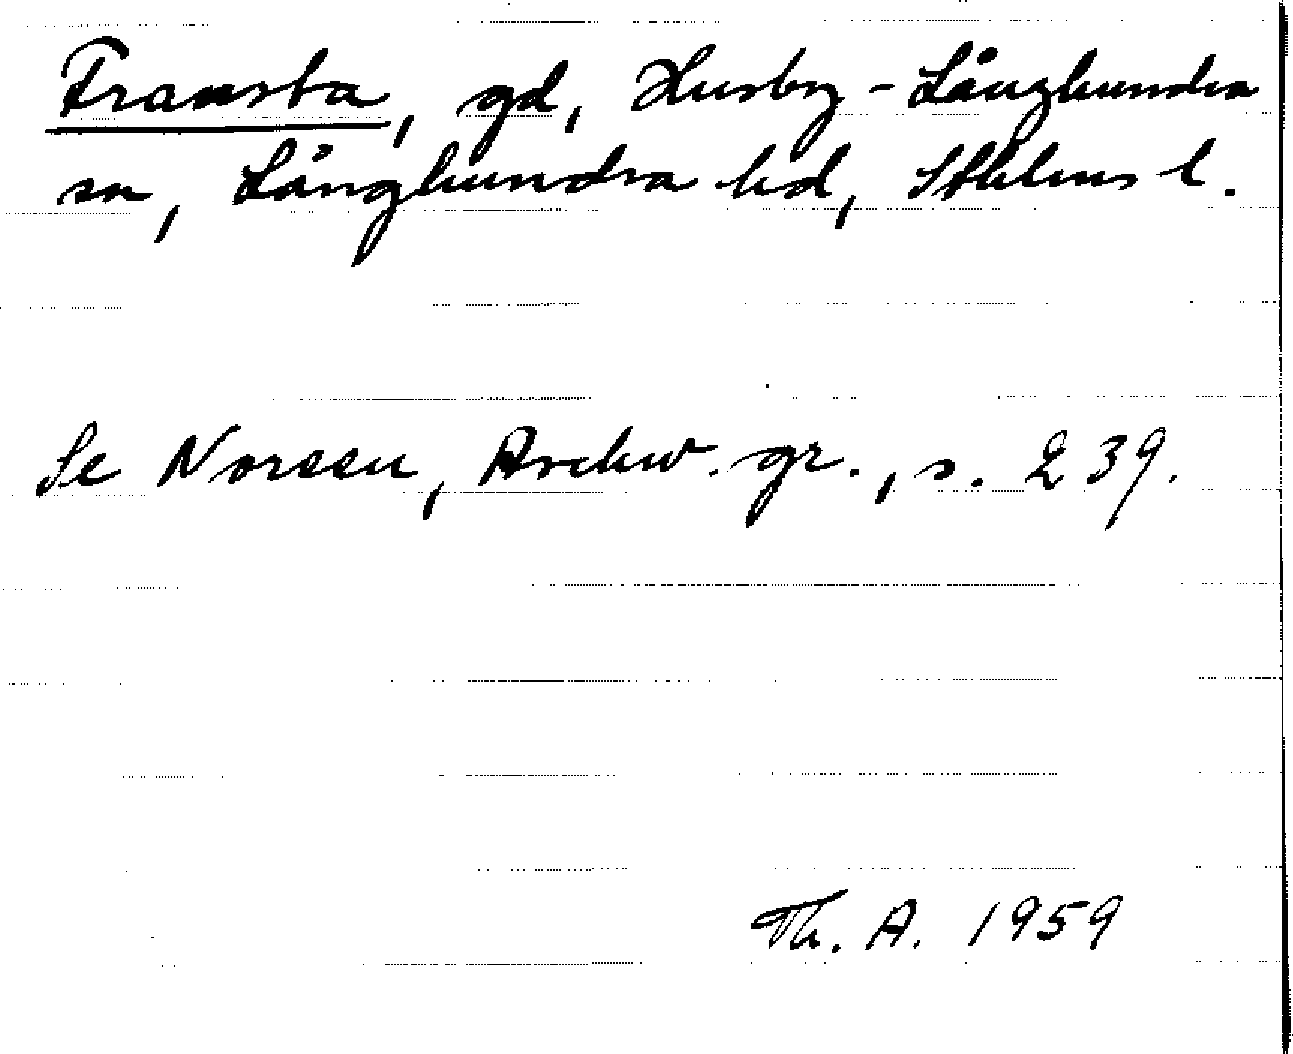 Fransta, gd, Husby-Långhundra
sn, Långhundra hd, Sthlms l.
Se Noreen, Aschw. gr., s. 239.
Th. A. 1959